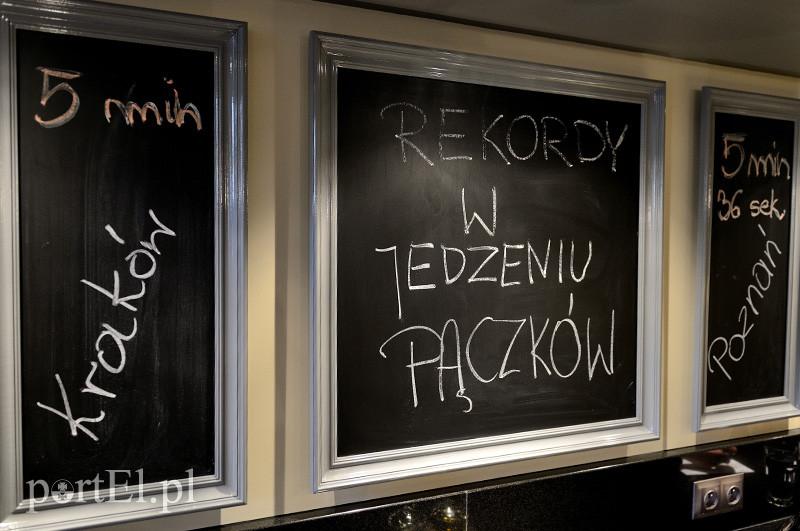 5 min
Kraków
REKORDY
W
JEDZENIU
PĄCZKÓW
5 min
36 sek
Poznań
portEl.pl